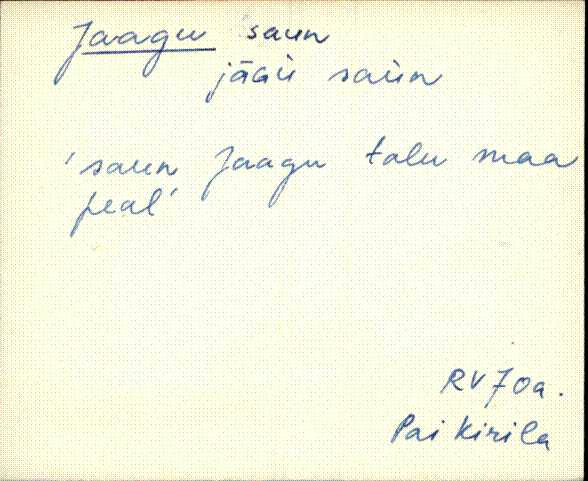 Jaagu saun
jääü saün
'saun Jaagu talu maa
peal'
RV 70a.
Pai Kirila